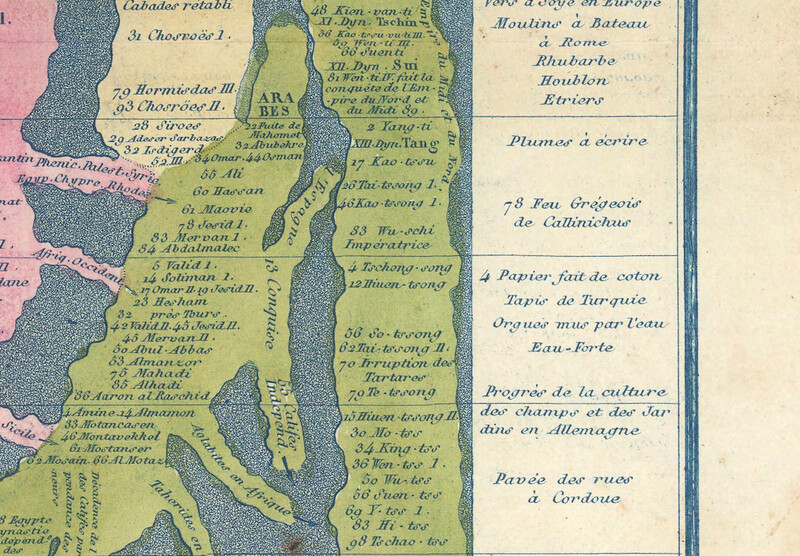 Cabades rétabli
31 Chosroës 1.
79 Hormisdas III.
93 Chosröes II.
28 Siroes
29 Adeser Sarbazas
32 Isdigerd
52 III.
ARA
BES
22 Fuite de
Mahomet
32 Abubekre
34 Omar. 44 Osman
55 Ali
60 Hassan
61 Maovie
78 Jesid 1.
83 Mervan 1.
84 Abdalmalec
5 Valid 1.
14 Soliman 1.
17 Omar II. 19 Jesid II.
23 Hesham
32 près Tours.
42 Valid II. 45 Jesid II.
45 Mervan II.
50 Abul-Abbas
53 Almanzor
75 Mahadi
85 Alhadi
86 Aaron al Raschid
4 Amine. 14 Almamon
33 Motancasen
46 Montavekhel
61 Mostanser
62 Mosain. 66 Al Motaz
antin Phenic. Palest. Syrie
Egyp. Chypre Rhodes
Afriq. Occident.
Sicile
Décadence de l
des Califes par
pendance des
8 Egypte
des
Tahorides en
Aglabites en Afrique
13 Conquise
l'Espagne
55 Califes
Independ.
48 Kien-van-ti
XI. Dyn. Tschin
56 Kao-tssu-vu-ti III.
59 Wen-ti III.
66 Suenti
XII. Dyn. Sui
81 Wen-ti IV. fait la
conquête de l'Em-
pire du Nord et
du Midi 89.
2 Yang-ti
XIII. Dyn. Tang
17 Kao-tssu
26 Tai-tssong 1.
46 Kao-tssong 1.
83 Wu-schi
Impératrice
4 Tschong-song
12 Hiuen-tsong
56 So-tssong
62 Tai-tssong II.
70 Irruption des
Tartares
79 Te-tssong
15 Hiuen-tssong II.
30 Mo-tss
34 King-tss
36 Wen-tss 1.
50 Wu-tss
56 Suen-tss
69 Y-tss 1.
83 Hi-tss
98 Tschao-tss
Empire du Midi et du Nord.
Vers à soye en Europe
Moulins à Bateau
à Rome
Rhubarbe
Houblon
Etriers
Plumes à écrire
78 Feu Grégeois
de Callinichus
4 Papier fait de coton
Tapis de Turquie
Orgues mus par l'eau
Eau-Forte
Progrès de la culture
des champs et des Jar
dins en Allemagne
Pavée des rues
à Cordoue